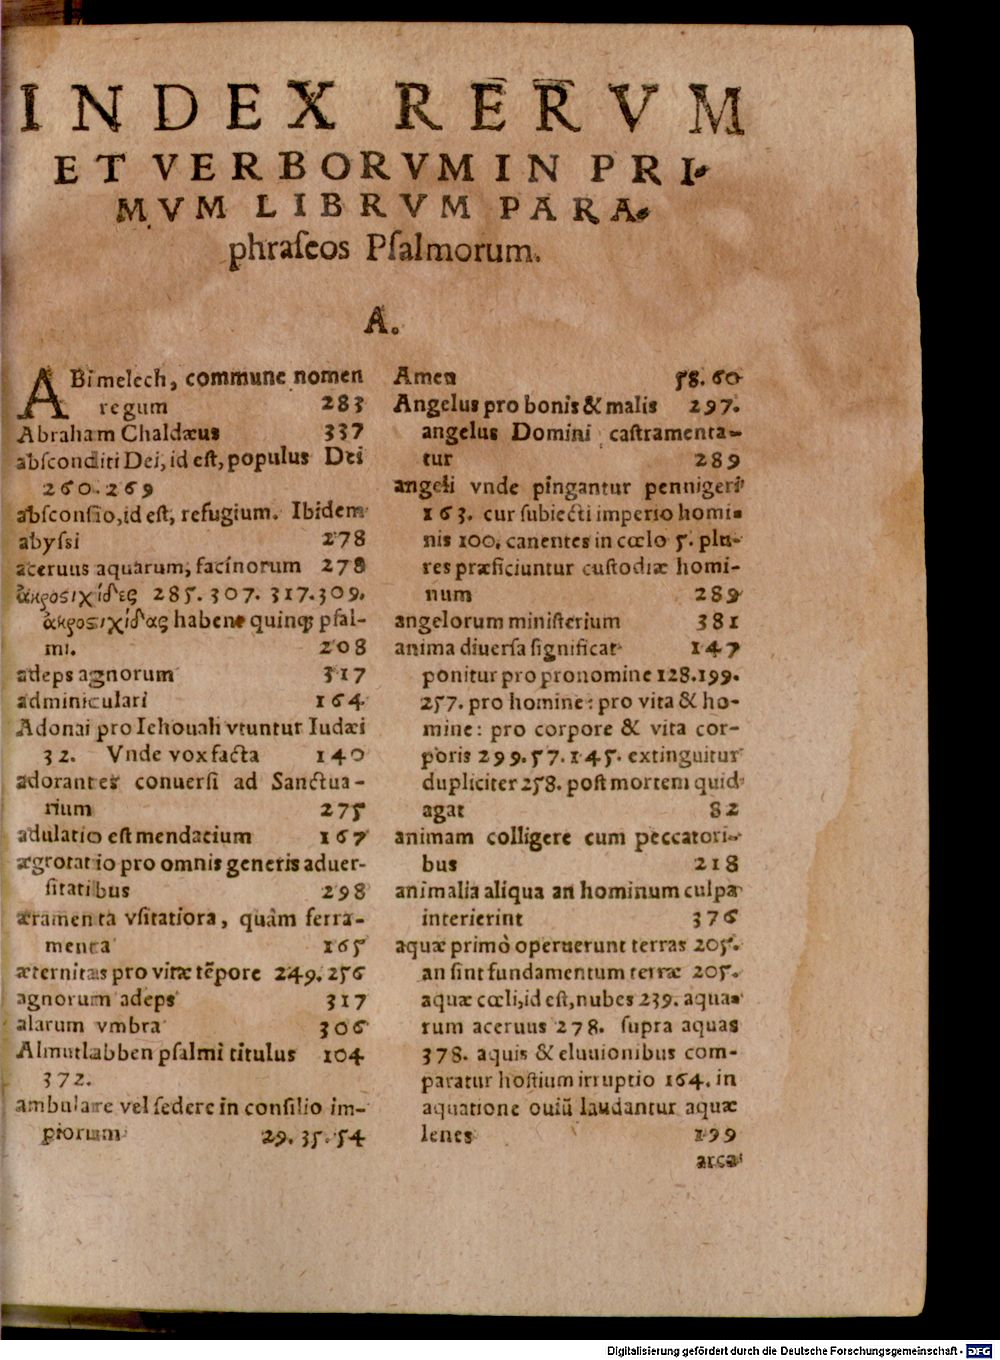 INDEX RERVM
ET VERBORVM IN PRI-
MVM LIBRVM PARA-
phraſeos Pſalmorum.
A.
ABimelech, commune nomen
regum 283
Abraham Chaldæus 337
abſconditi Dei, id eſt, populus Dei
260. 269
abſconſio, id eſt, refugium. Ibidem
abyſsi 278
aceruus aquarum, facinorum 278
ἀκροστιχίδες 285. 307. 317. 309.
ἀκροστιχίδας habent quinq; pſal-
mi. 208
adeps agnorum 317
adminiculari 164
Adonai pro Iehouah vtuntur Iudæi
32. Vnde vox facta 140
adorantes conuerſi ad Sanctua-
rium 275
adulatio eſt mendacium 167
ægrotatio pro omnis generis aduer-
ſitatibus 298
æramenta vſitatiora, quàm ferra-
menta 165
æternitas pro vitæ tẽpore 249. 256
agnorum adeps 317
alarum vmbra 306
Almutlabben pſalmi titulus 104
372.
ambulare vel ſedere in conſilio im-
piorum 29. 35. 54
Amen 58. 60
Angelus pro bonis & malis 297.
angelus Domini caſtramenta-
tur 289
angeli vnde pingantur pennigeri
163. cur ſubiecti imperio homi-
nis 100. canentes in cœlo 5. plu-
res præficiuntur cuſtodiæ homi-
num 289
angelorum miniſterium 381
anima diuerſa ſignificat 147
ponitur pro pronomine 128. 199.
257. pro homine: pro vita & ho-
mine: pro corpore & vita cor-
poris 299. 57. 145. extinguitur
dupliciter 258. poſt mortem quid
agat 82
animam colligere cum peccatori-
bus 218
animalia aliqua an hominum culpa
interierint 376
aquæ primò operuerunt terras 205.
an ſint fundamentum terræ 205.
aquæ cœli, id eſt, nubes 239. aqua-
rum aceruus 278. ſupra aquas
378. aquis & eluuionibus com-
paratur hoſtium irruptio 164. in
aquatione ouiũ laudantur aquæ
lenes 199
arca
Digitalisierung gefördert durch die Deutsche Forschungsgemeinschaft - DFG